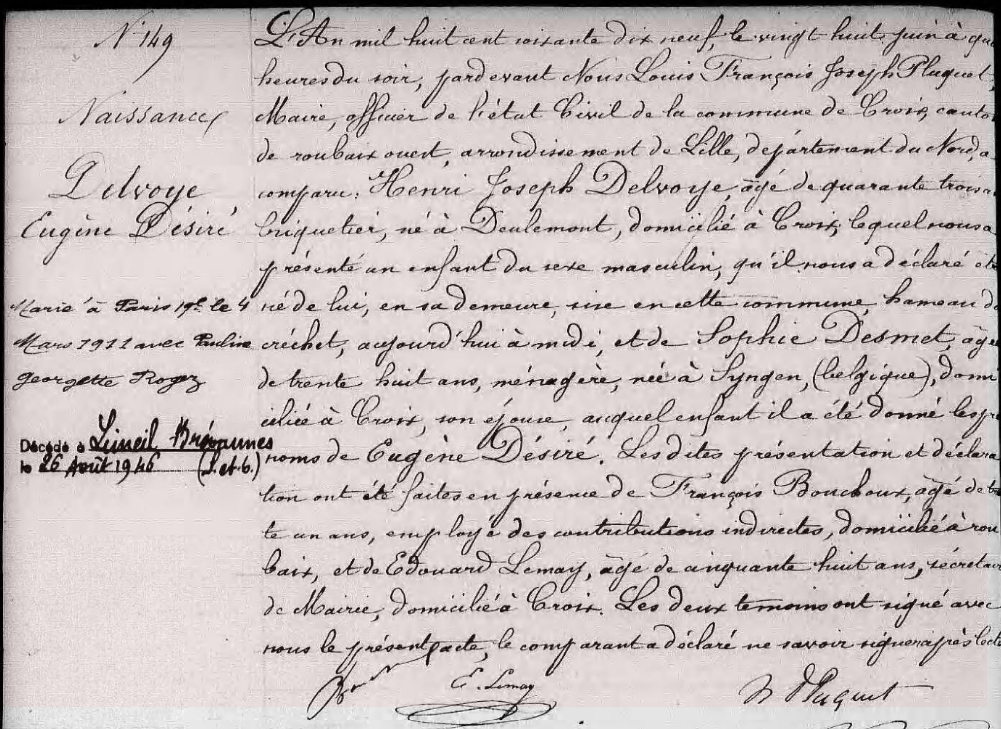 N° 149
Naissance
Delvoye
Eugène Désiré
Marié à Paris 19e le 4
Mars 1911 avec Pauline
georgette Rogez
Décédé à Limeil Brévannes
le 26 Août 1946 (S. et O.)
L'An mil huit cent soixante dix neuf, le vingt huit juin à
heures du soir, pardevant Nous Louis François Joseph Pluquet
Maire, officier de l'état Civil de la commune de Croix, canto
de roubaix ouest, arrondissement de Lille, département du Nord, a
comparu: Henri Joseph Delvoye, âgé de quarante trois a
briquetier, né à Deulemont, domicilié à Croix, lequel nous a
présenté un enfant du sexe masculin, qu'il nous a déclaré êt
né de lui, en sa demeure, sise en cette commune, hameau d
créchet, aujourd'hui à midi, et de Sophie Desmet, âgé
de trente huit ans, ménagère, née à Syngen, (belgique), domi
ciliée à Croix, son épouse, auquel enfant il a été donné les pr
noms de Eugène Désiré. Les dites présentation et déclara
tion ont été faites en présence de François Bouchoux, âgé de
te un ans, employé des contributions indirectes, domicilié à rou
baix, et de Edouard Lemay, âgé de cinquante huit ans, secrétair
de Mairie, domicilié à Croix. Les deux témoins ont signé avec
nous le présent acte, le comparant a déclaré ne savoir signer après lect
E. Lemay
Pluquet